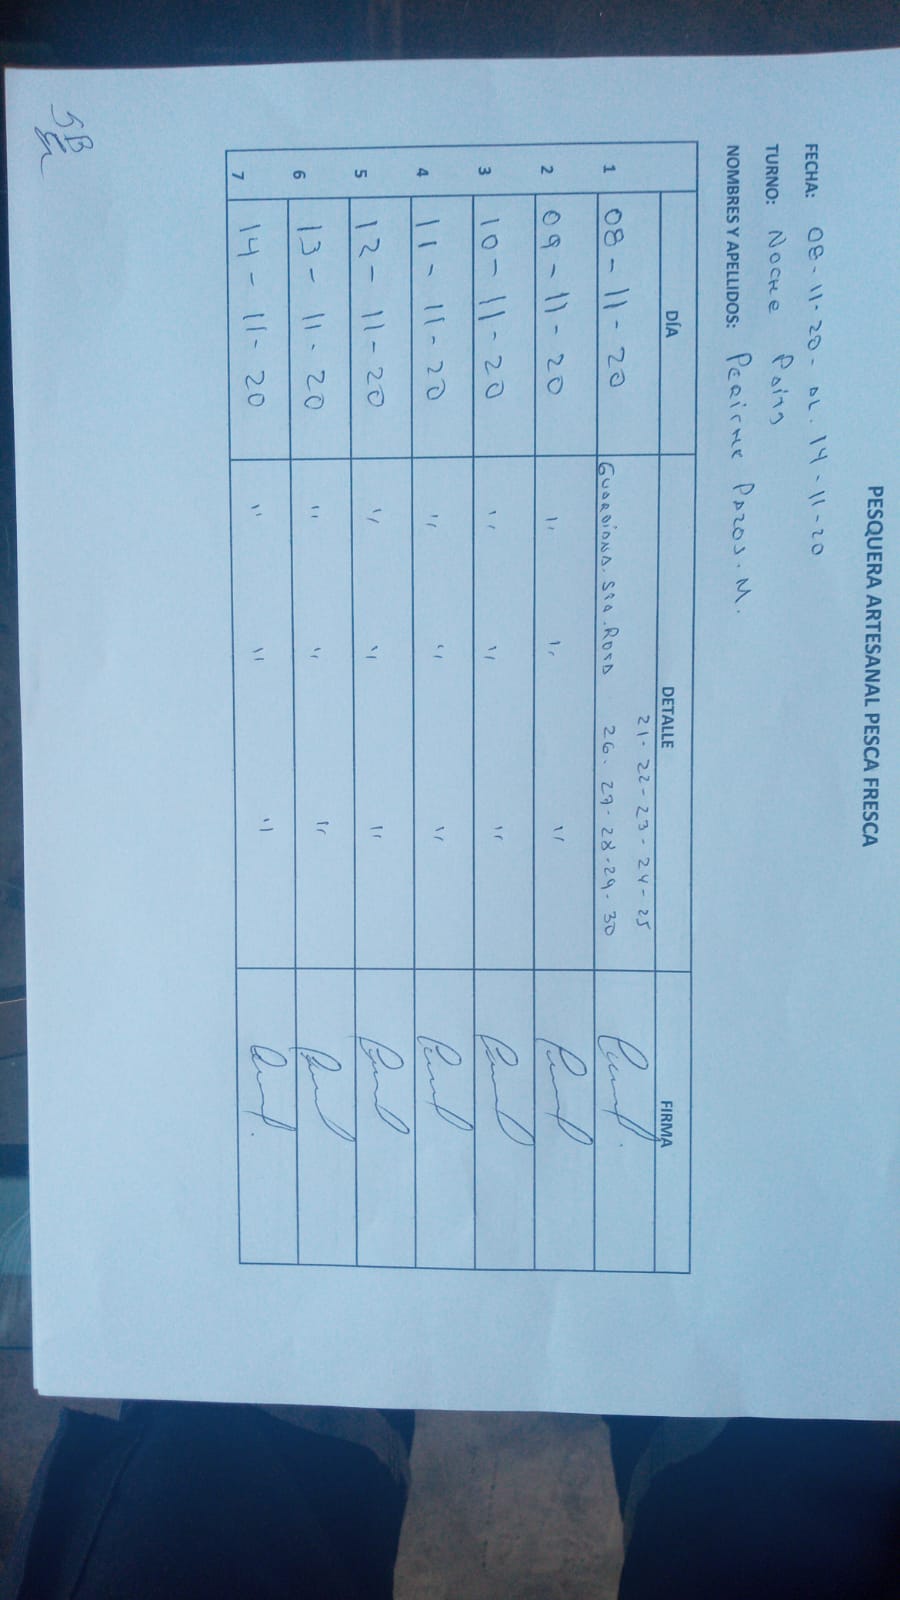 PESQUERA ARTESANAL PESCA FRESCA
FECHA: 08-11-20- AL. 14-11-20
TURNO: Noche
NOMBRES Y APELLIDOS: Periche Pazos. M.
DÍA DETALLE FIRMA
21- 22- 23- 24- 25
1 08-11-20 Guardiana. Sta. Rosa 26. 27- 28-29-30
2 09-11-20 " " "
3 10-11-20 " " "
4 11-11-20 " " "
5 12-11-20 " " "
6 13-11-20 " " "
7 14-11-20 " " "